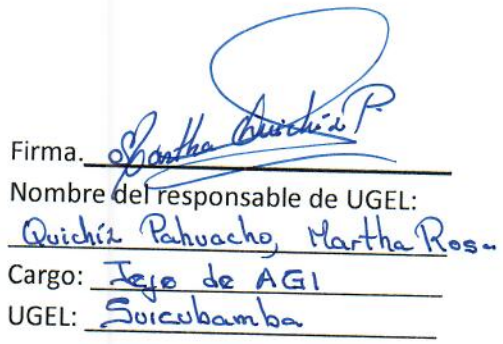 Firma. Martha Quichíz P.
Nombre del responsable de UGEL:
Quichíz Pahuacho, Martha Rosa
Cargo: Jefe de AGI
UGEL: Sucubamba